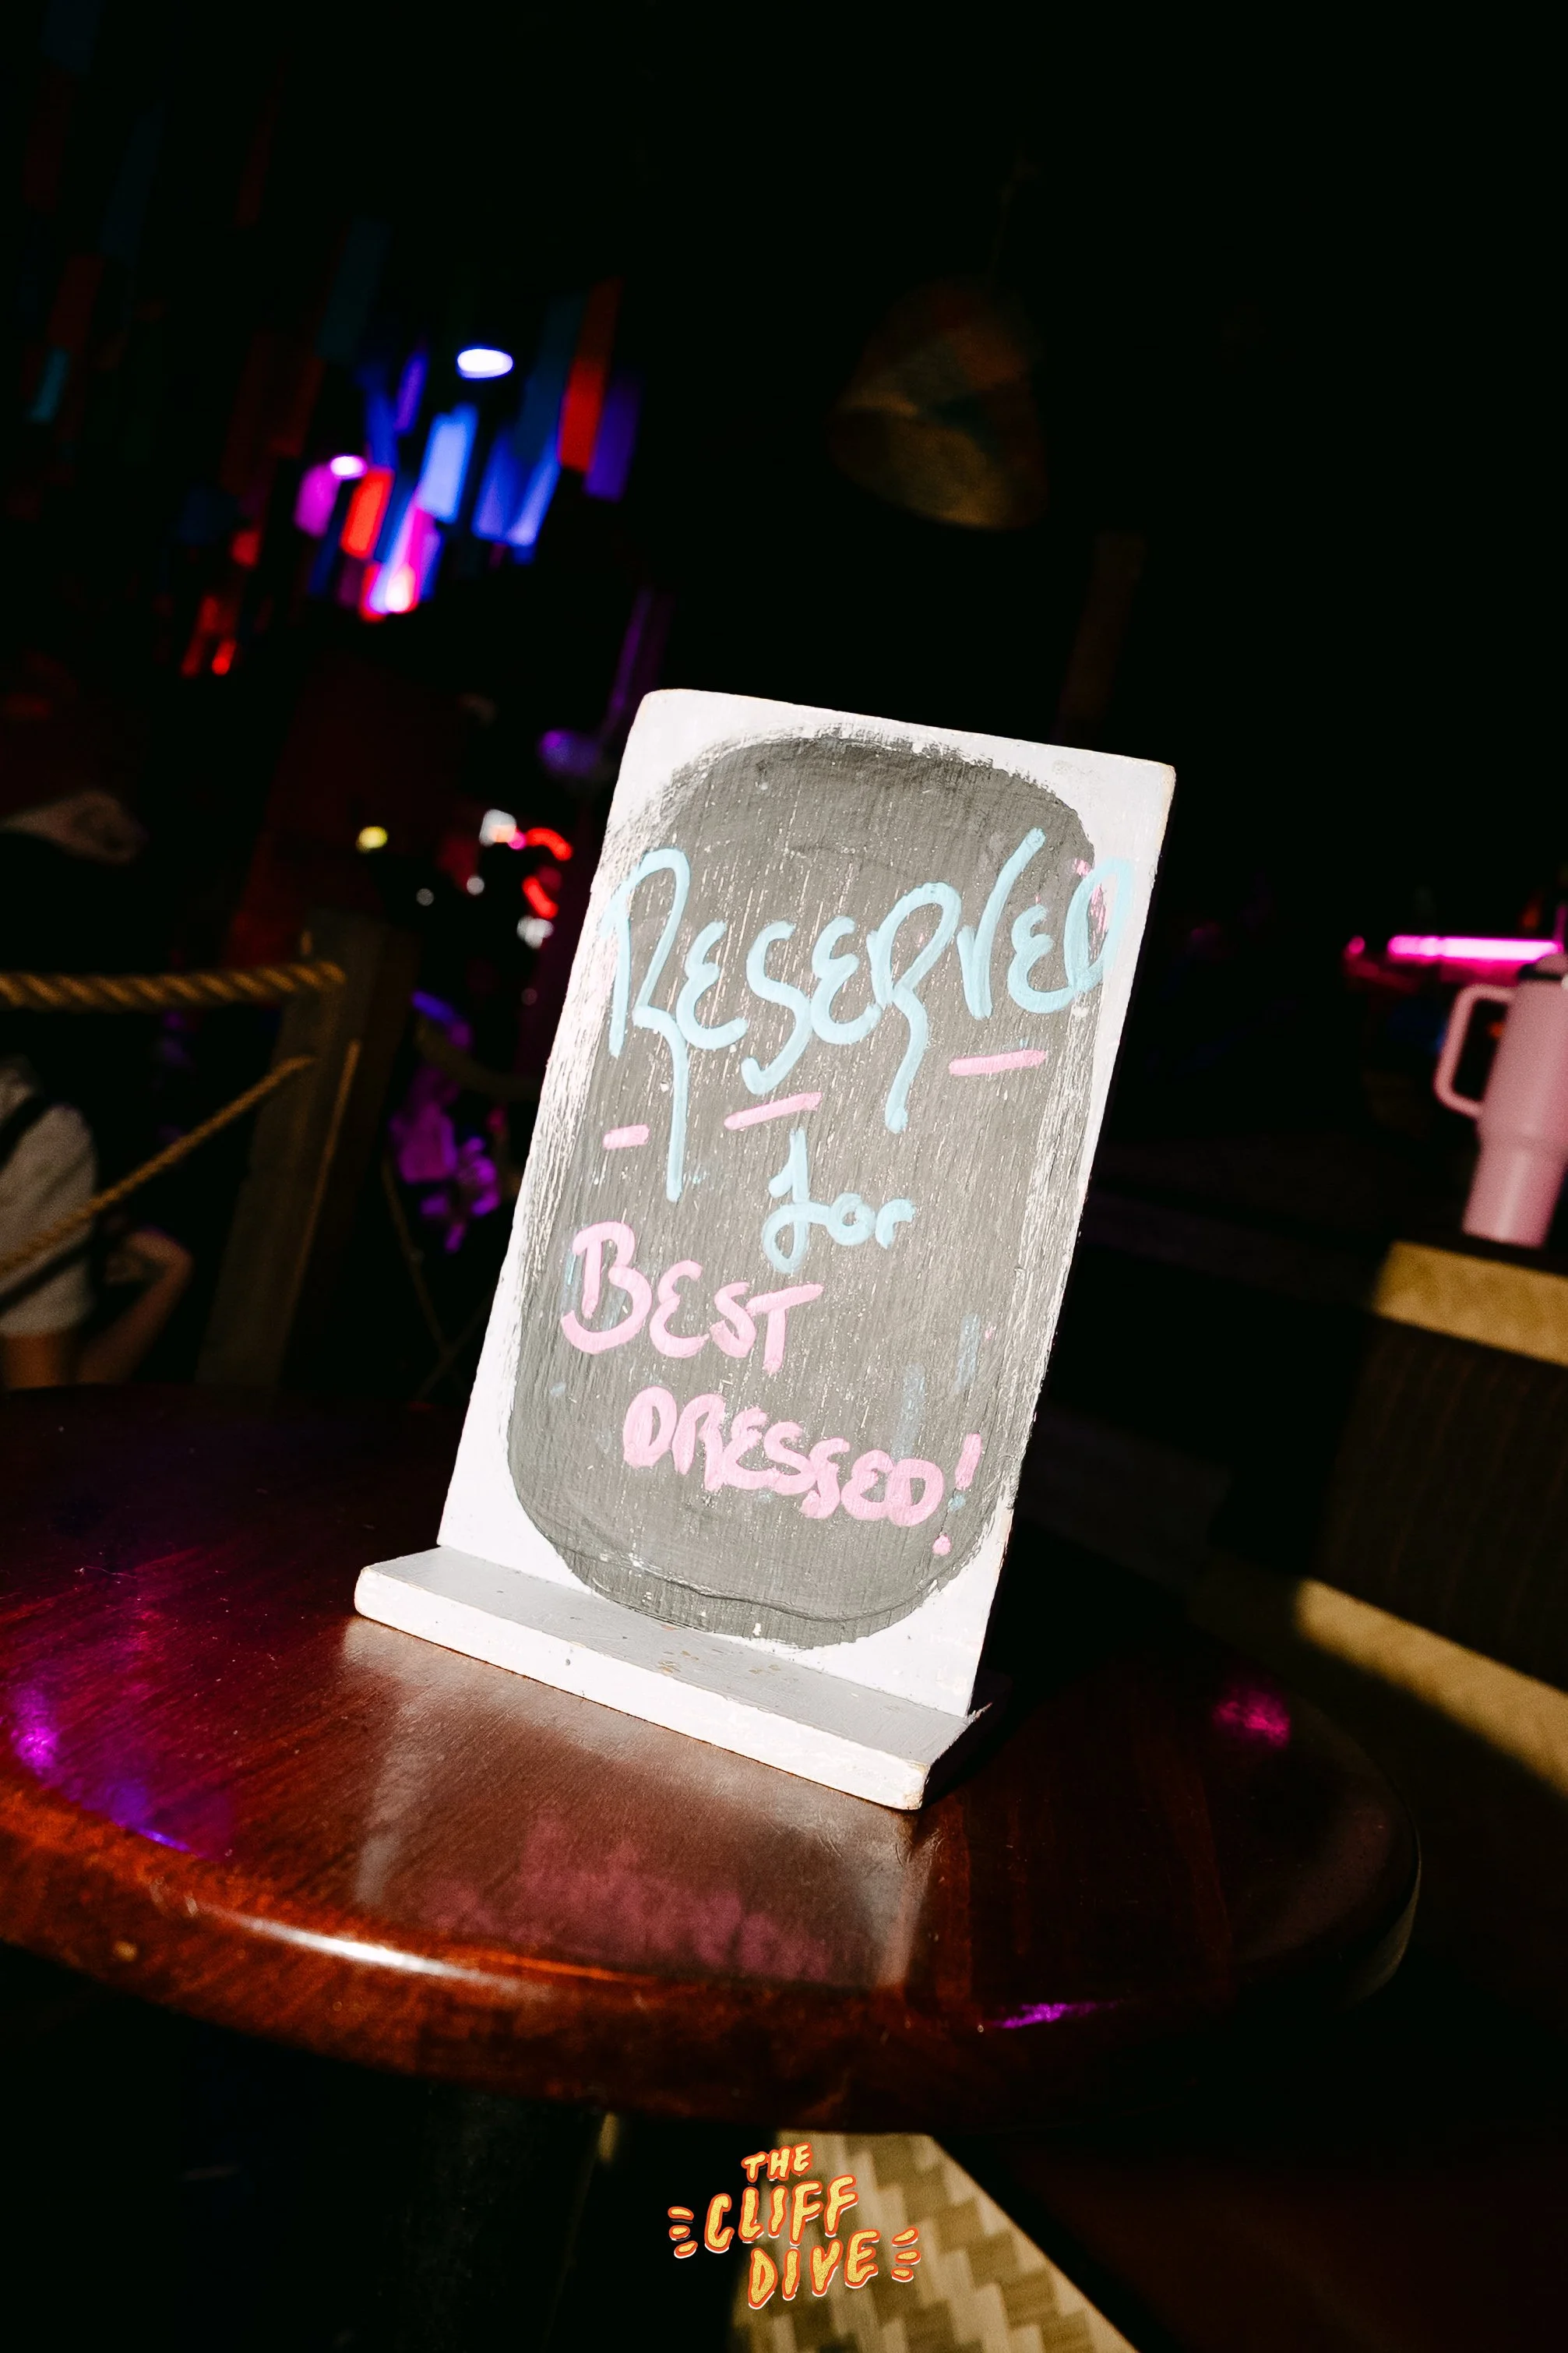 RESERVED
for
BEST
DRESSED!
THE
CLIFF
DIVE